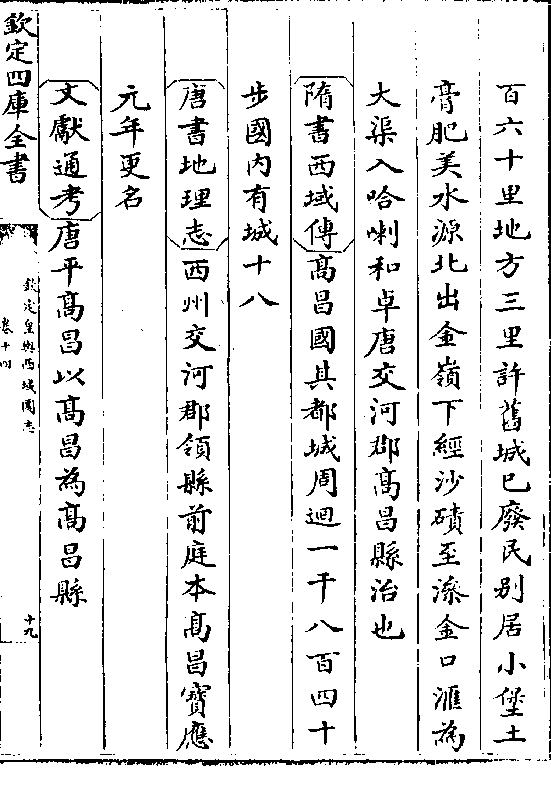 百六十里地方三里許舊城已廢民别居小堡土
膏肥美水源北出金嶺下經沙磧至滲金口滙為
大渠入哈喇和卓唐交河郡髙昌縣治也
隋書西域傳髙昌國其都城周迴一千八百四十
步國内有城十八
唐書地理志西州交河郡領縣前庭本髙昌寳應
元年更名
文獻通考唐平髙昌以髙昌為髙昌縣
欽定四庫全書
欽定皇輿西域圖志
卷十四
十九